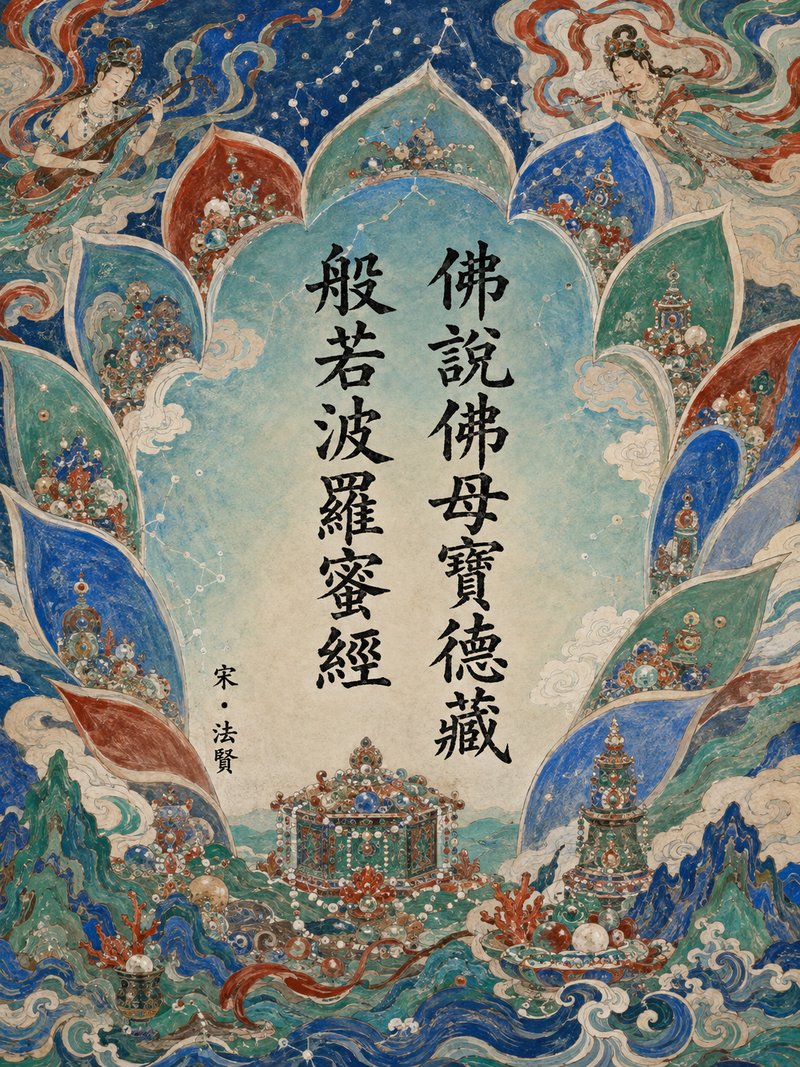 佛說佛母寶德藏
般若波羅蜜經
宋・法賢